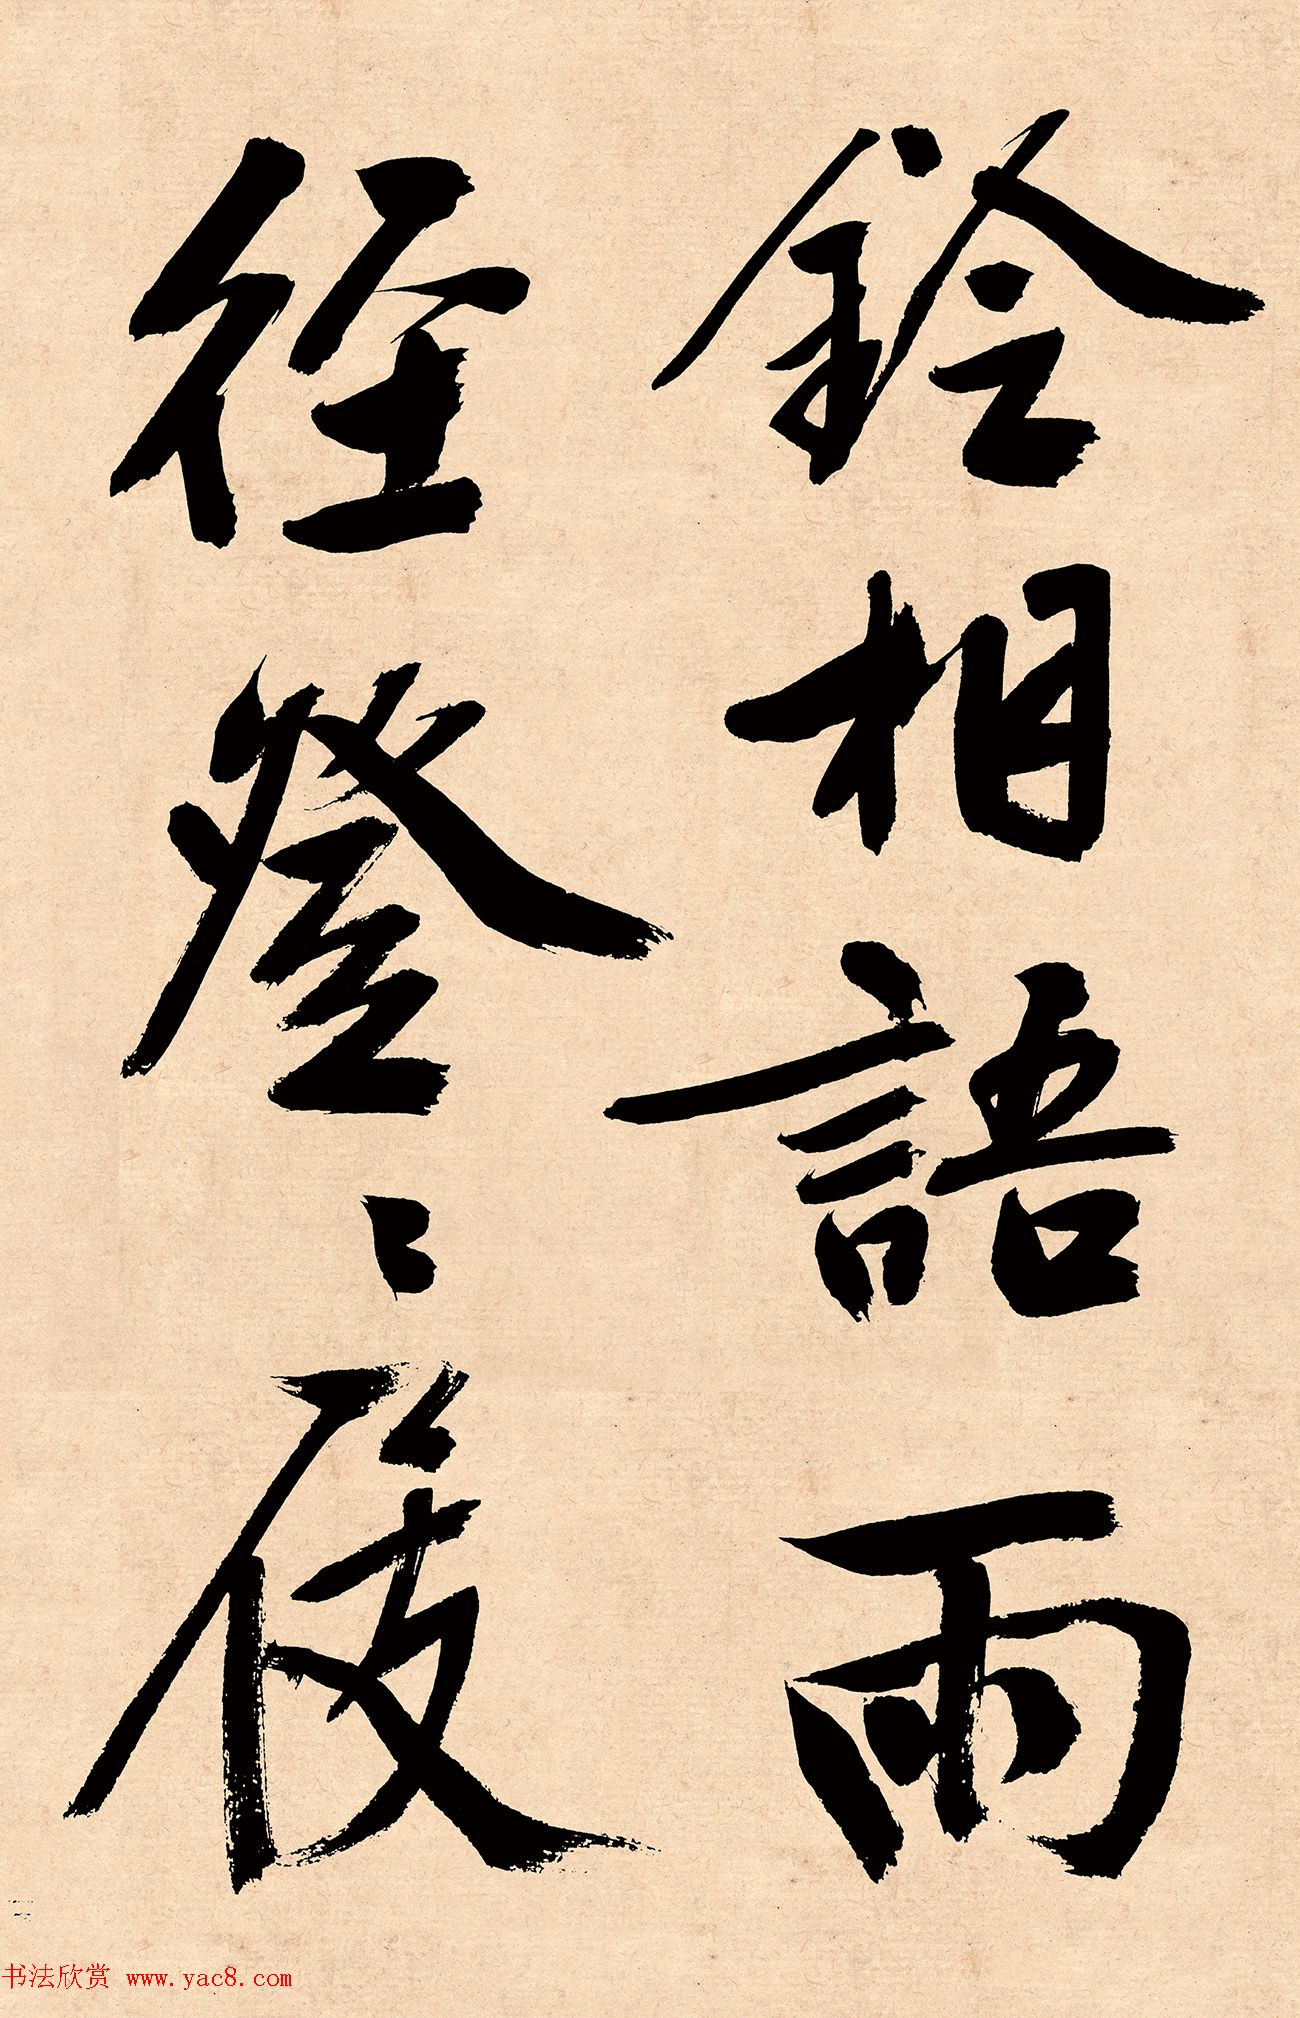 鈴相語雨
径登〻屐
书法欣赏 www.yac8.com